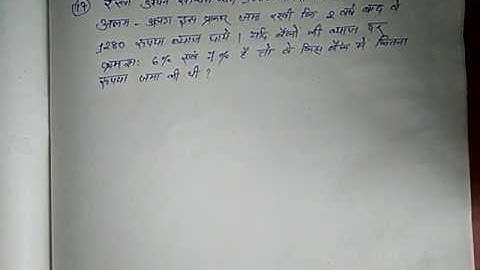 (17) रेखा अपने
अलग - अलग इस प्रकार जमा रखी कि 2 वर्ष बाद वे
1280 रूपया ब्याज पायी । यदि बैंको की ब्याज दर
क्रमशः 6% एवं 7% है तो वे किस बैंक में कितना
रूपया जमा की थी ?